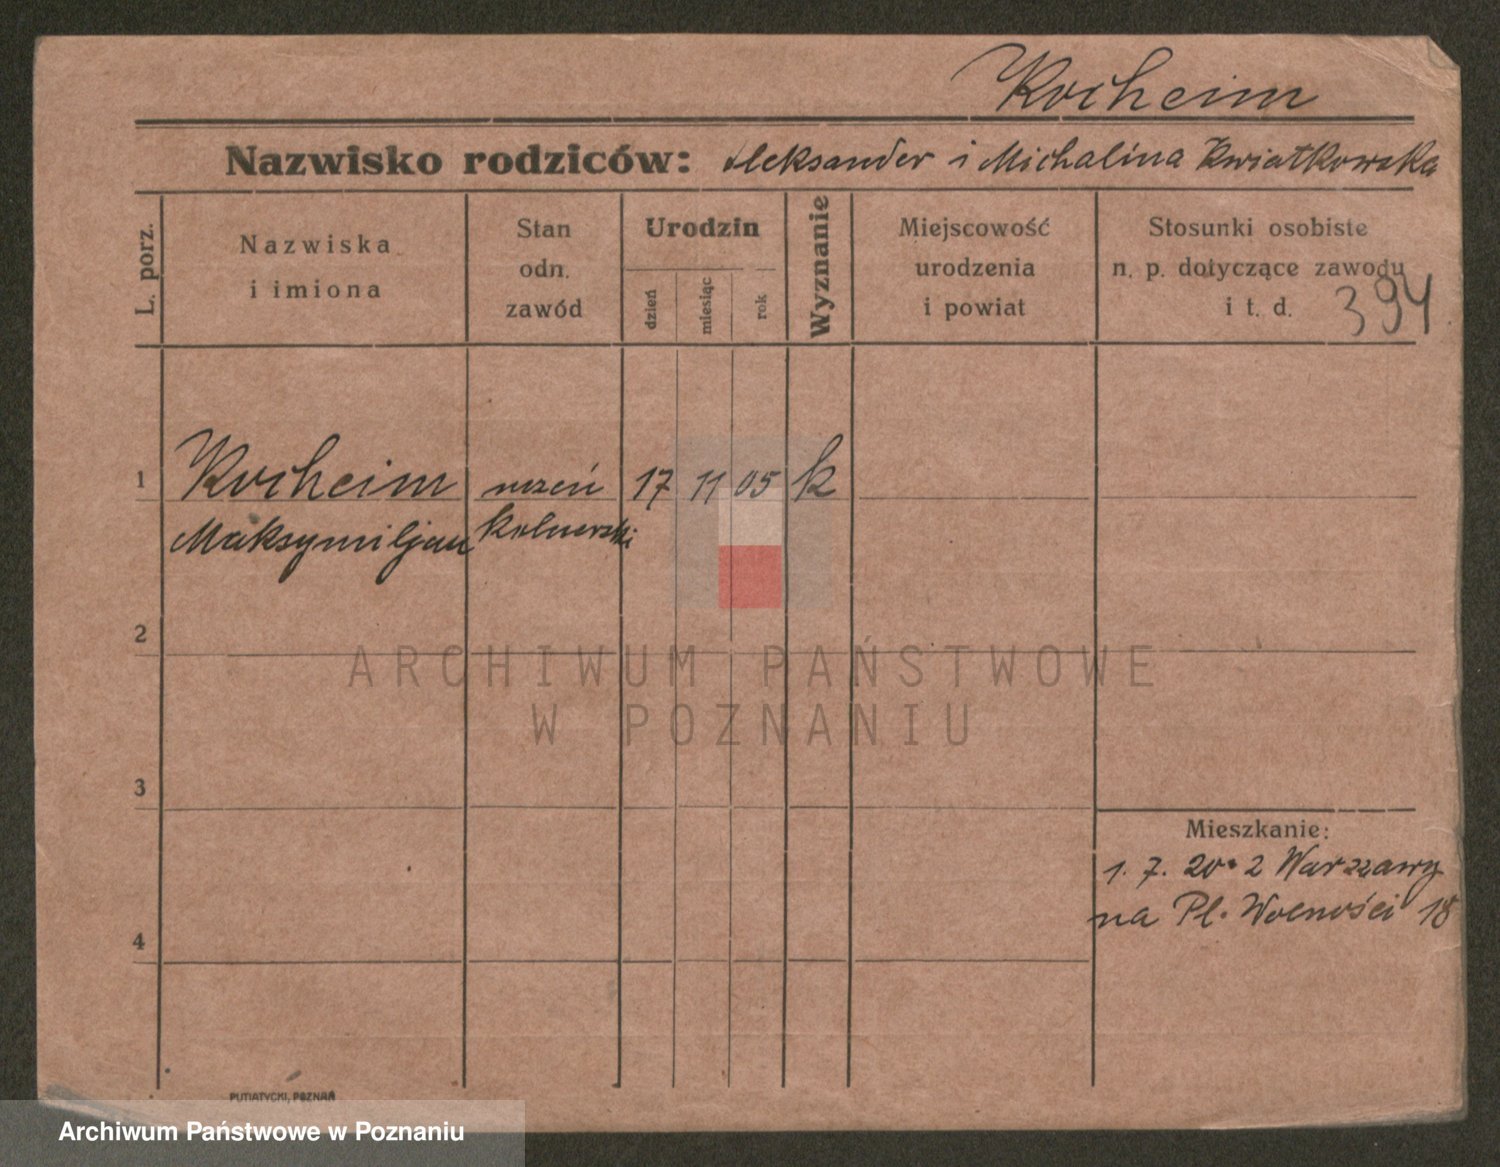 Kocheim
Nazwisko rodziców: Aleksander i Michalina Kwiatkowska
L. porz.
Nazwiska
i imiona
Stan
odn.
zawód
Urodzin
dzień
miesiąc
rok
Wyznanie
Miejscowość
urodzenia
i powiat
Stosunki osobiste
n. p. dotyczące zawodu
i t. d.
394
1 Kocheim uczeń 17 11 05 k
Maksymiljan kelnerski
2
3
4
Mieszkanie:
1. 7. 20. z Warszawy
na Pl. Wolności 18
PUTIATYCKI, POZNAŃ
ARCHIWUM PAŃSTWOWE
W POZNANIU
Archiwum Państwowe w Poznaniu